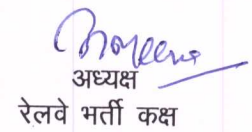 अध्यक्ष
रेलवे भर्ती कक्ष